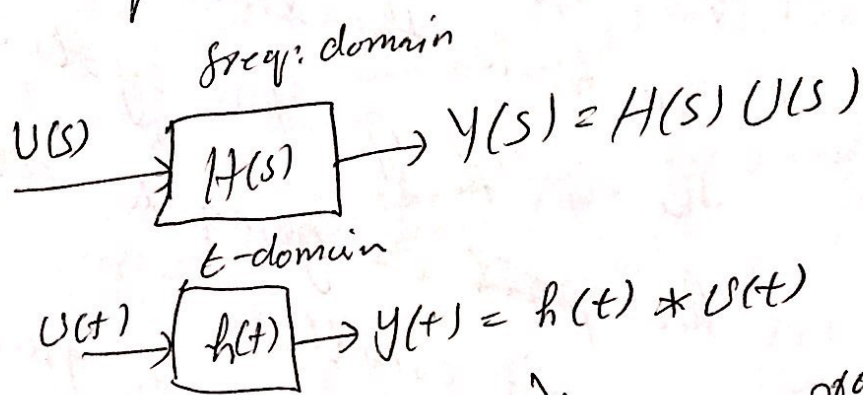 freq: domain
U(s) H(s) Y(s) = H(s) U(s)
t-domain
U(t) h(t) y(t) = h(t) * U(t)